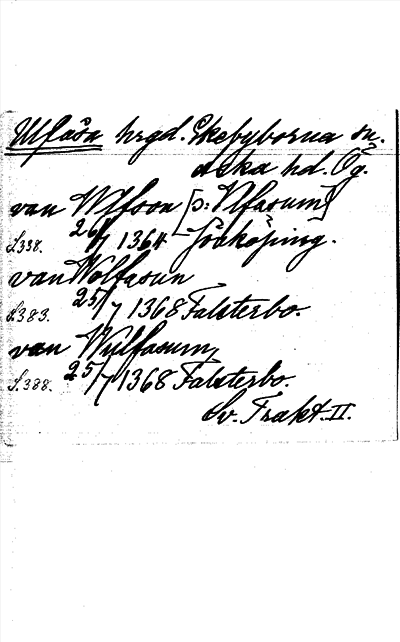 Ulfåsa hrgd. Ekebyborna sn.
Aska hd. Ög.
van Wlfson [ɔ: Ulfasum]
S. 338. 26/7 1364 Jönköping.
van Wolfasun
S. 383. 25/7 1368 Falsterbo.
van Wulfasum,
S. 388. 25/7 1368 Falsterbo.
Sv. Trakt. II.